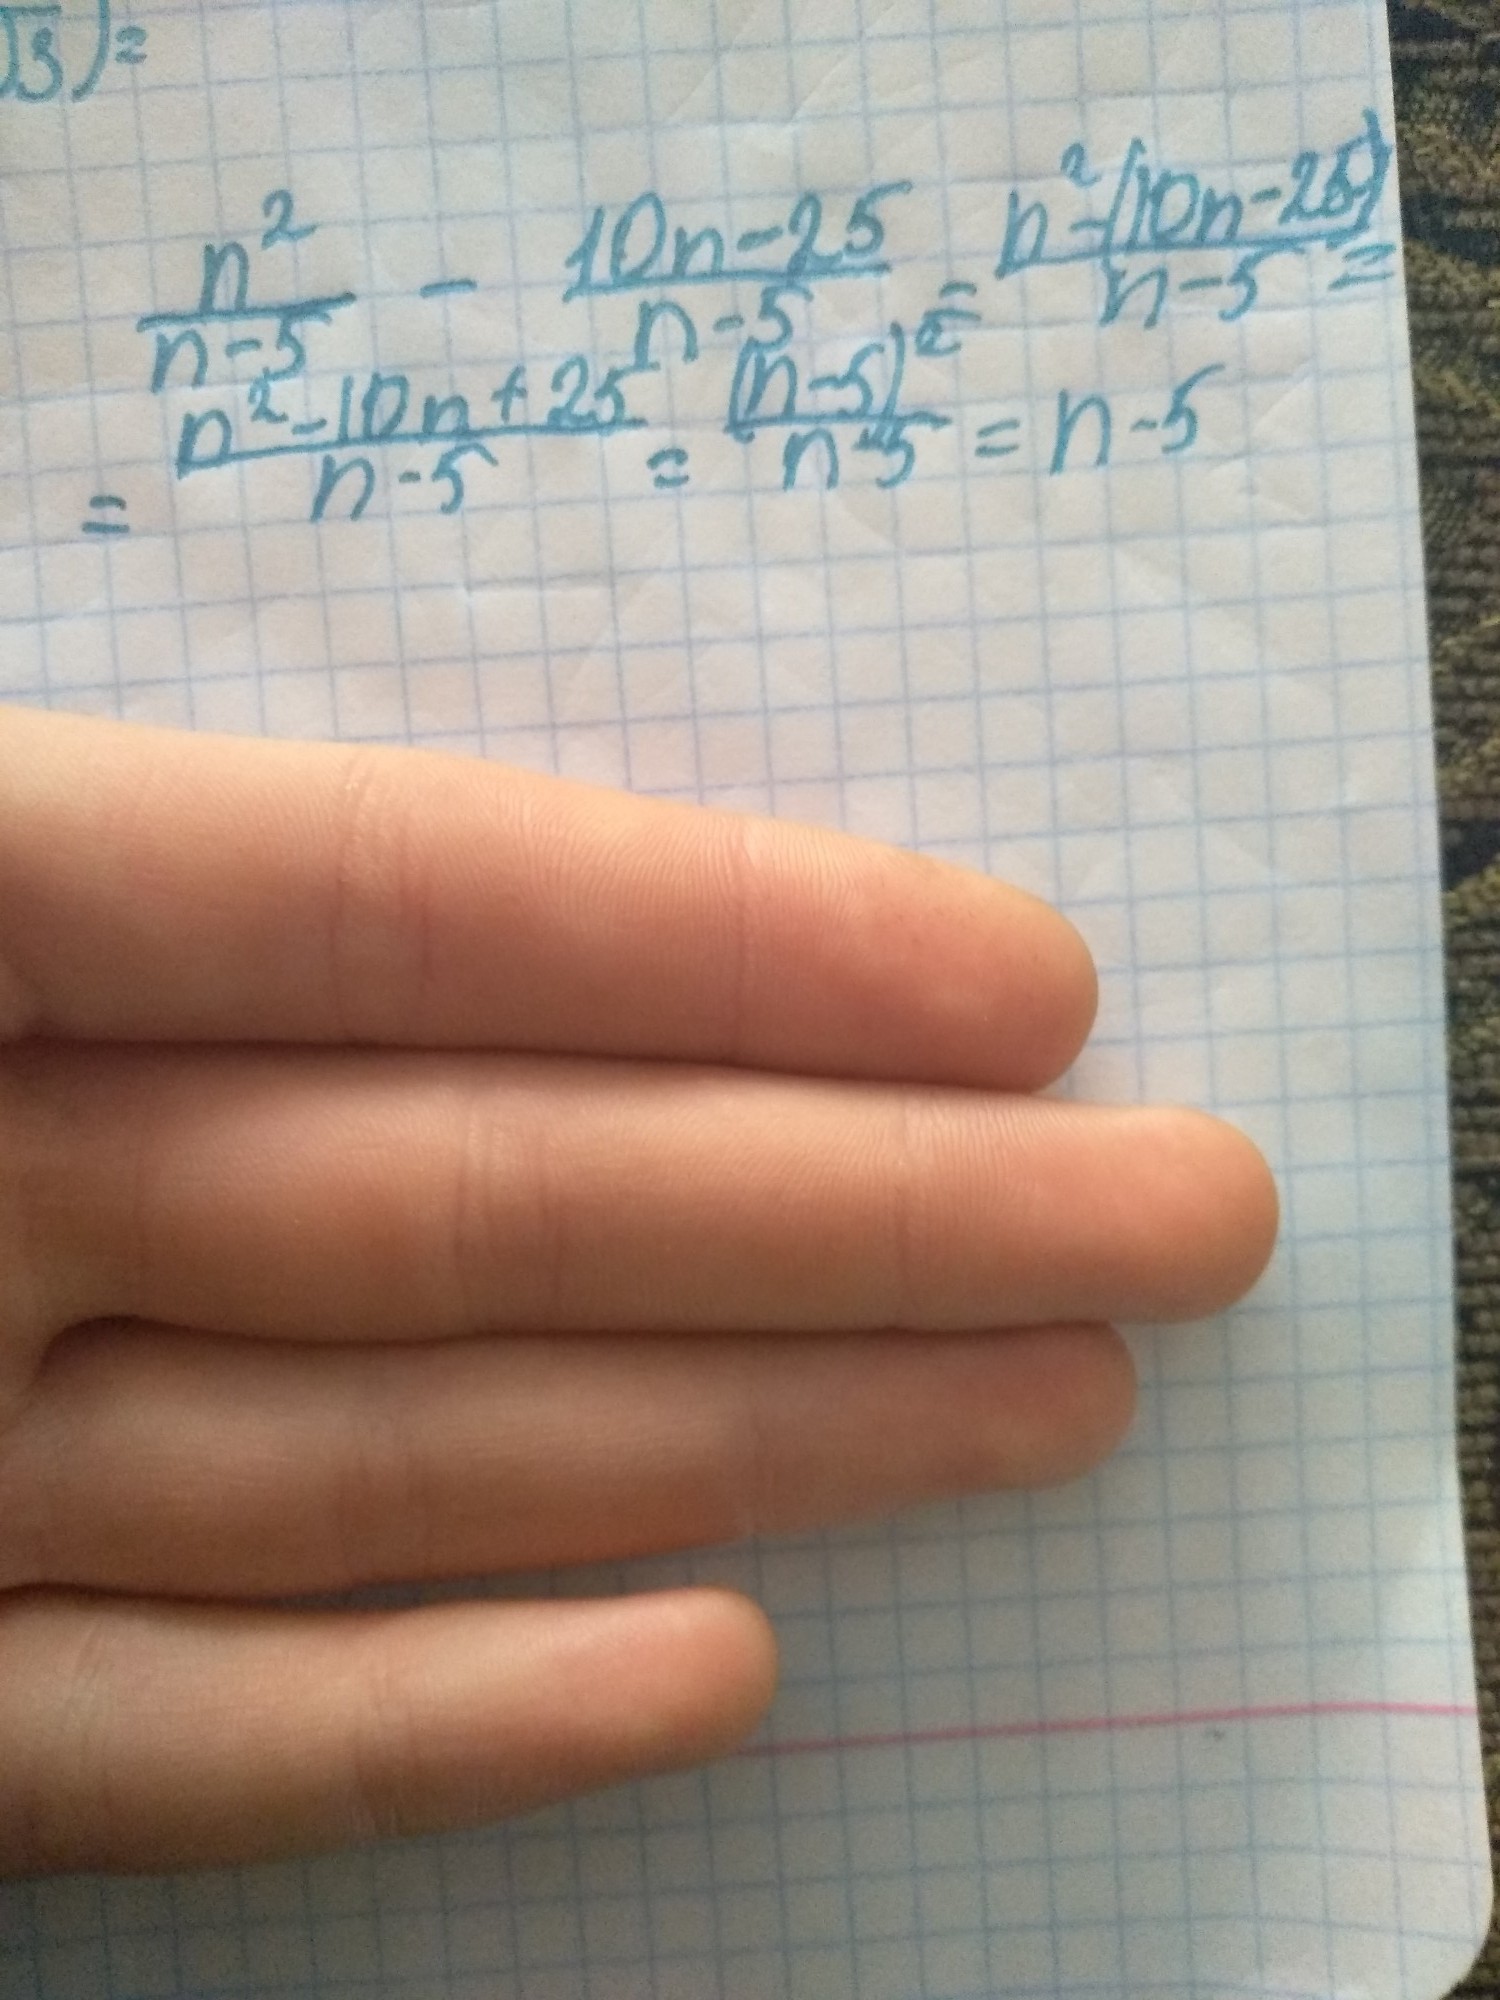 √3)=
n²/(n-5) - (10n-25)/(n-5) = (n²-(10n-25))/(n-5) =
= (n²-10n+25)/(n-5) = (n-5)²/(n-5) = n-5